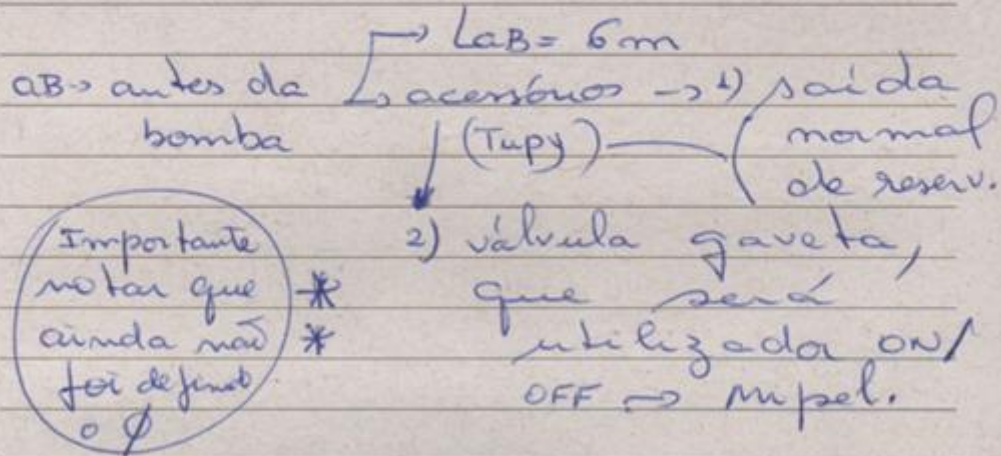 → LaB = 6m
aB → antes da bomba
→ acessórios → 1) saída normal de reserv.
(Tupy)
2) válvula gaveta,
que será
utilizada ON/
OFF → mipel.
Importante
notar que *
ainda não *
foi definido
o Ø